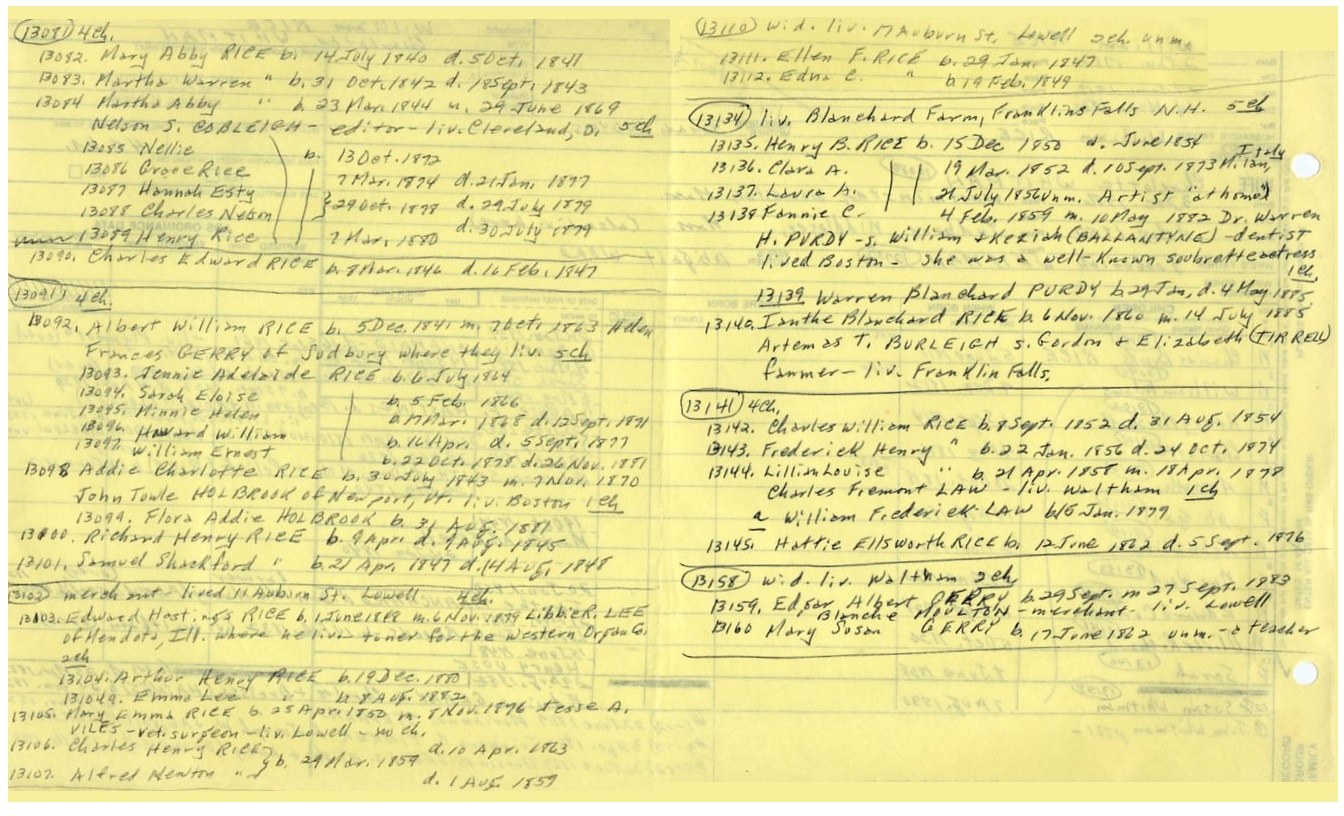 13081 4ch.
13082. Mary Abby RICE b. 14 July 1840 d. 5 Oct. 1841
13083. Martha Warren " b. 31 Oct. 1842 d. 18 Sept. 1843
13084 Martha Abby " b. 23 Mar. 1844 m. 29 June 1869
Nelson S. COBLEIGH - editor - liv. Cleveland, O. 5ch
13085 Nellie b. 13 Oct. 1872
13086 Grace Rice 7 Mar. 1874 d. 21 Jan. 1877
13087 Hannah Esty
13088 Charles Nelson } 29 Oct. 1878 d. 29 July 1879
d. 30 July 1879
13089 Henry Rice 7 Mar. 1880
13090. Charles Edward RICE b. 8 Mar. 1846 d. 16 Feb. 1847
13091 4ch.
13092. Albert William RICE b. 5 Dec. 1841 m. 7 Oct. 1863 Helen
Frances GERRY of Sudbury where they liv. 5ch
13093. Jennie Adelaide RICE b. 6 July 1864
13094. Sarah Eloise b. 5 Feb. 1866
13095. Minnie Helen b. 17 Mar. 1868 d. 12 Sept. 1871
13096. Howard William b. 16 Apr. d. 5 Sept. 1877
13097. William Ernest b. 22 Oct. 1878 d. 26 Nov. 1881
13098 Addie Charlotte RICE b. 30 July 1843 m. 7 Nov. 1870
John Towle HOLBROOK of Newport, Vt. liv. Boston 1ch
13099. Flora Addie HOLBROOK b. 31 Aug. 1881
13100. Richard Henry RICE b. 9 Apr. d. 9 Aug. 1845
13101. Samuel Shackford " b. 21 Apr. 1847 d. 14 Aug. 1848
13102 merchant - lived 11 Auburn St. Lowell 4ch.
13103. Edward Hastings RICE b. 1 June 1848 m. 6 Nov. 1879 Libbie R. LEE
of Mendota, Ill. where he liv. toner for the Western Organ Co.
2ch
13104. Arthur Henry RICE b. 19 Dec. 1880
13104a. Emma Lee b. 8 Aug. 1882
13105. Mary Emma RICE b. 25 Apr. 1850 m. 8 Nov. 1876 Jesse A.
VILES - vet. surgeon - liv. Lowell - no ch.
13106. Charles Henry RICE } b. 29 Mar. 1859 d. 10 Apr. 1863
13107. Alfred Newton " d. 1 Aug. 1859
13110 wid. liv. 17 Auburn St. Lowell 2ch. unm.
13111. Ellen F. RICE b. 29 Jan. 1847
13112. Edna C. " b. 19 Feb. 1849
13134 liv. Blanchard Farm, Franklins Falls N.H. 5ch
13135. Henry B. RICE b. 15 Dec 1850 d. June 1854
13136. Clara A. 19 Mar. 1852 d. 10 Sept. 1873 Milan, Italy
13137. Laura A. 21 July 1856 unm. Artist "at home"
13138 Fannie C. 4 Feb. 1859 m. 10 May 1882 Dr. Warren
H. PURDY - s. William & Keziah (BALLANTYNE) - dentist
lived Boston - she was a well-known soubrette actress
1ch.
13139 Warren Blanchard PURDY b. 29 Jan. d. 4 May 1885
13140. Ianthe Blanchard RICE b. 6 Nov. 1860 m. 14 July 1885
Artemas T. BURLEIGH s. Gordon & Elizabeth (TIRRELL)
farmer - liv. Franklin Falls.
13141 4ch.
13142. Charles William RICE b. 8 Sept. 1852 d. 31 Aug. 1854
13143. Frederick Henry " b. 22 Jan. 1856 d. 24 Oct. 1874
13144. Lillian Louise " b. 21 Apr. 1858 m. 18 Apr. 1878
Charles Fremont LAW - liv. Waltham 1ch
a William Frederick LAW b. 15 Jan. 1879
13145. Hattie Ellsworth RICE b. 12 June 1862 d. 5 Sept. 1876
13158 wid. liv. Waltham 2ch
13159. Edgar Albert GERRY b. 29 Sept. m 27 Sept. 1883
Blanche MOULTON - merchant - liv. Lowell
13160 Mary Susan GERRY b. 17 June 1862 unm. - a teacher